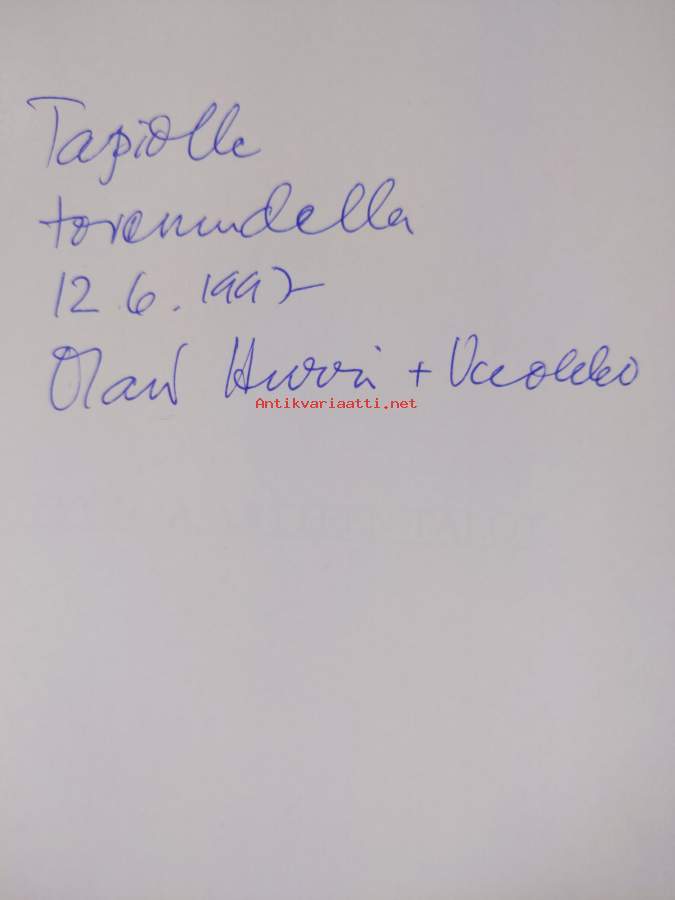 Tapiolle
toveruudella
12.6.1997
Olavi Hurri + Vuokko
Antikvariaatti.net